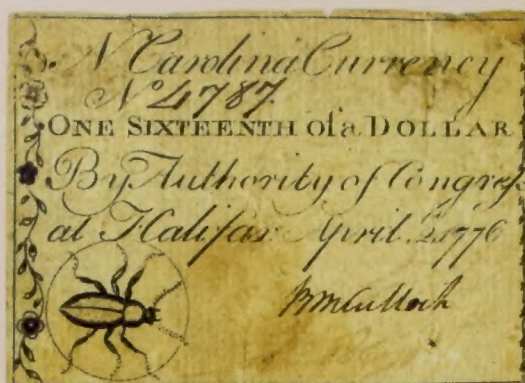 N Carolina Currency
No 4787.
ONE SIXTEENTH of a DOLLAR
By Authority of Congreſs
at Halifax April 2 1776